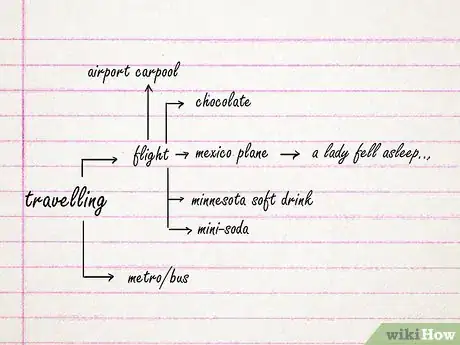 airport carpool
chocolate
flight → mexico plane → a lady fell asleep...
travelling
minnesota soft drink
mini-soda
metro/bus
wikiHow